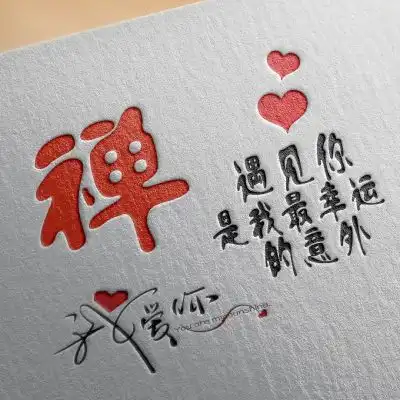 禅
遇见你
是我最幸运
的意外
我爱你
You are my sunshine